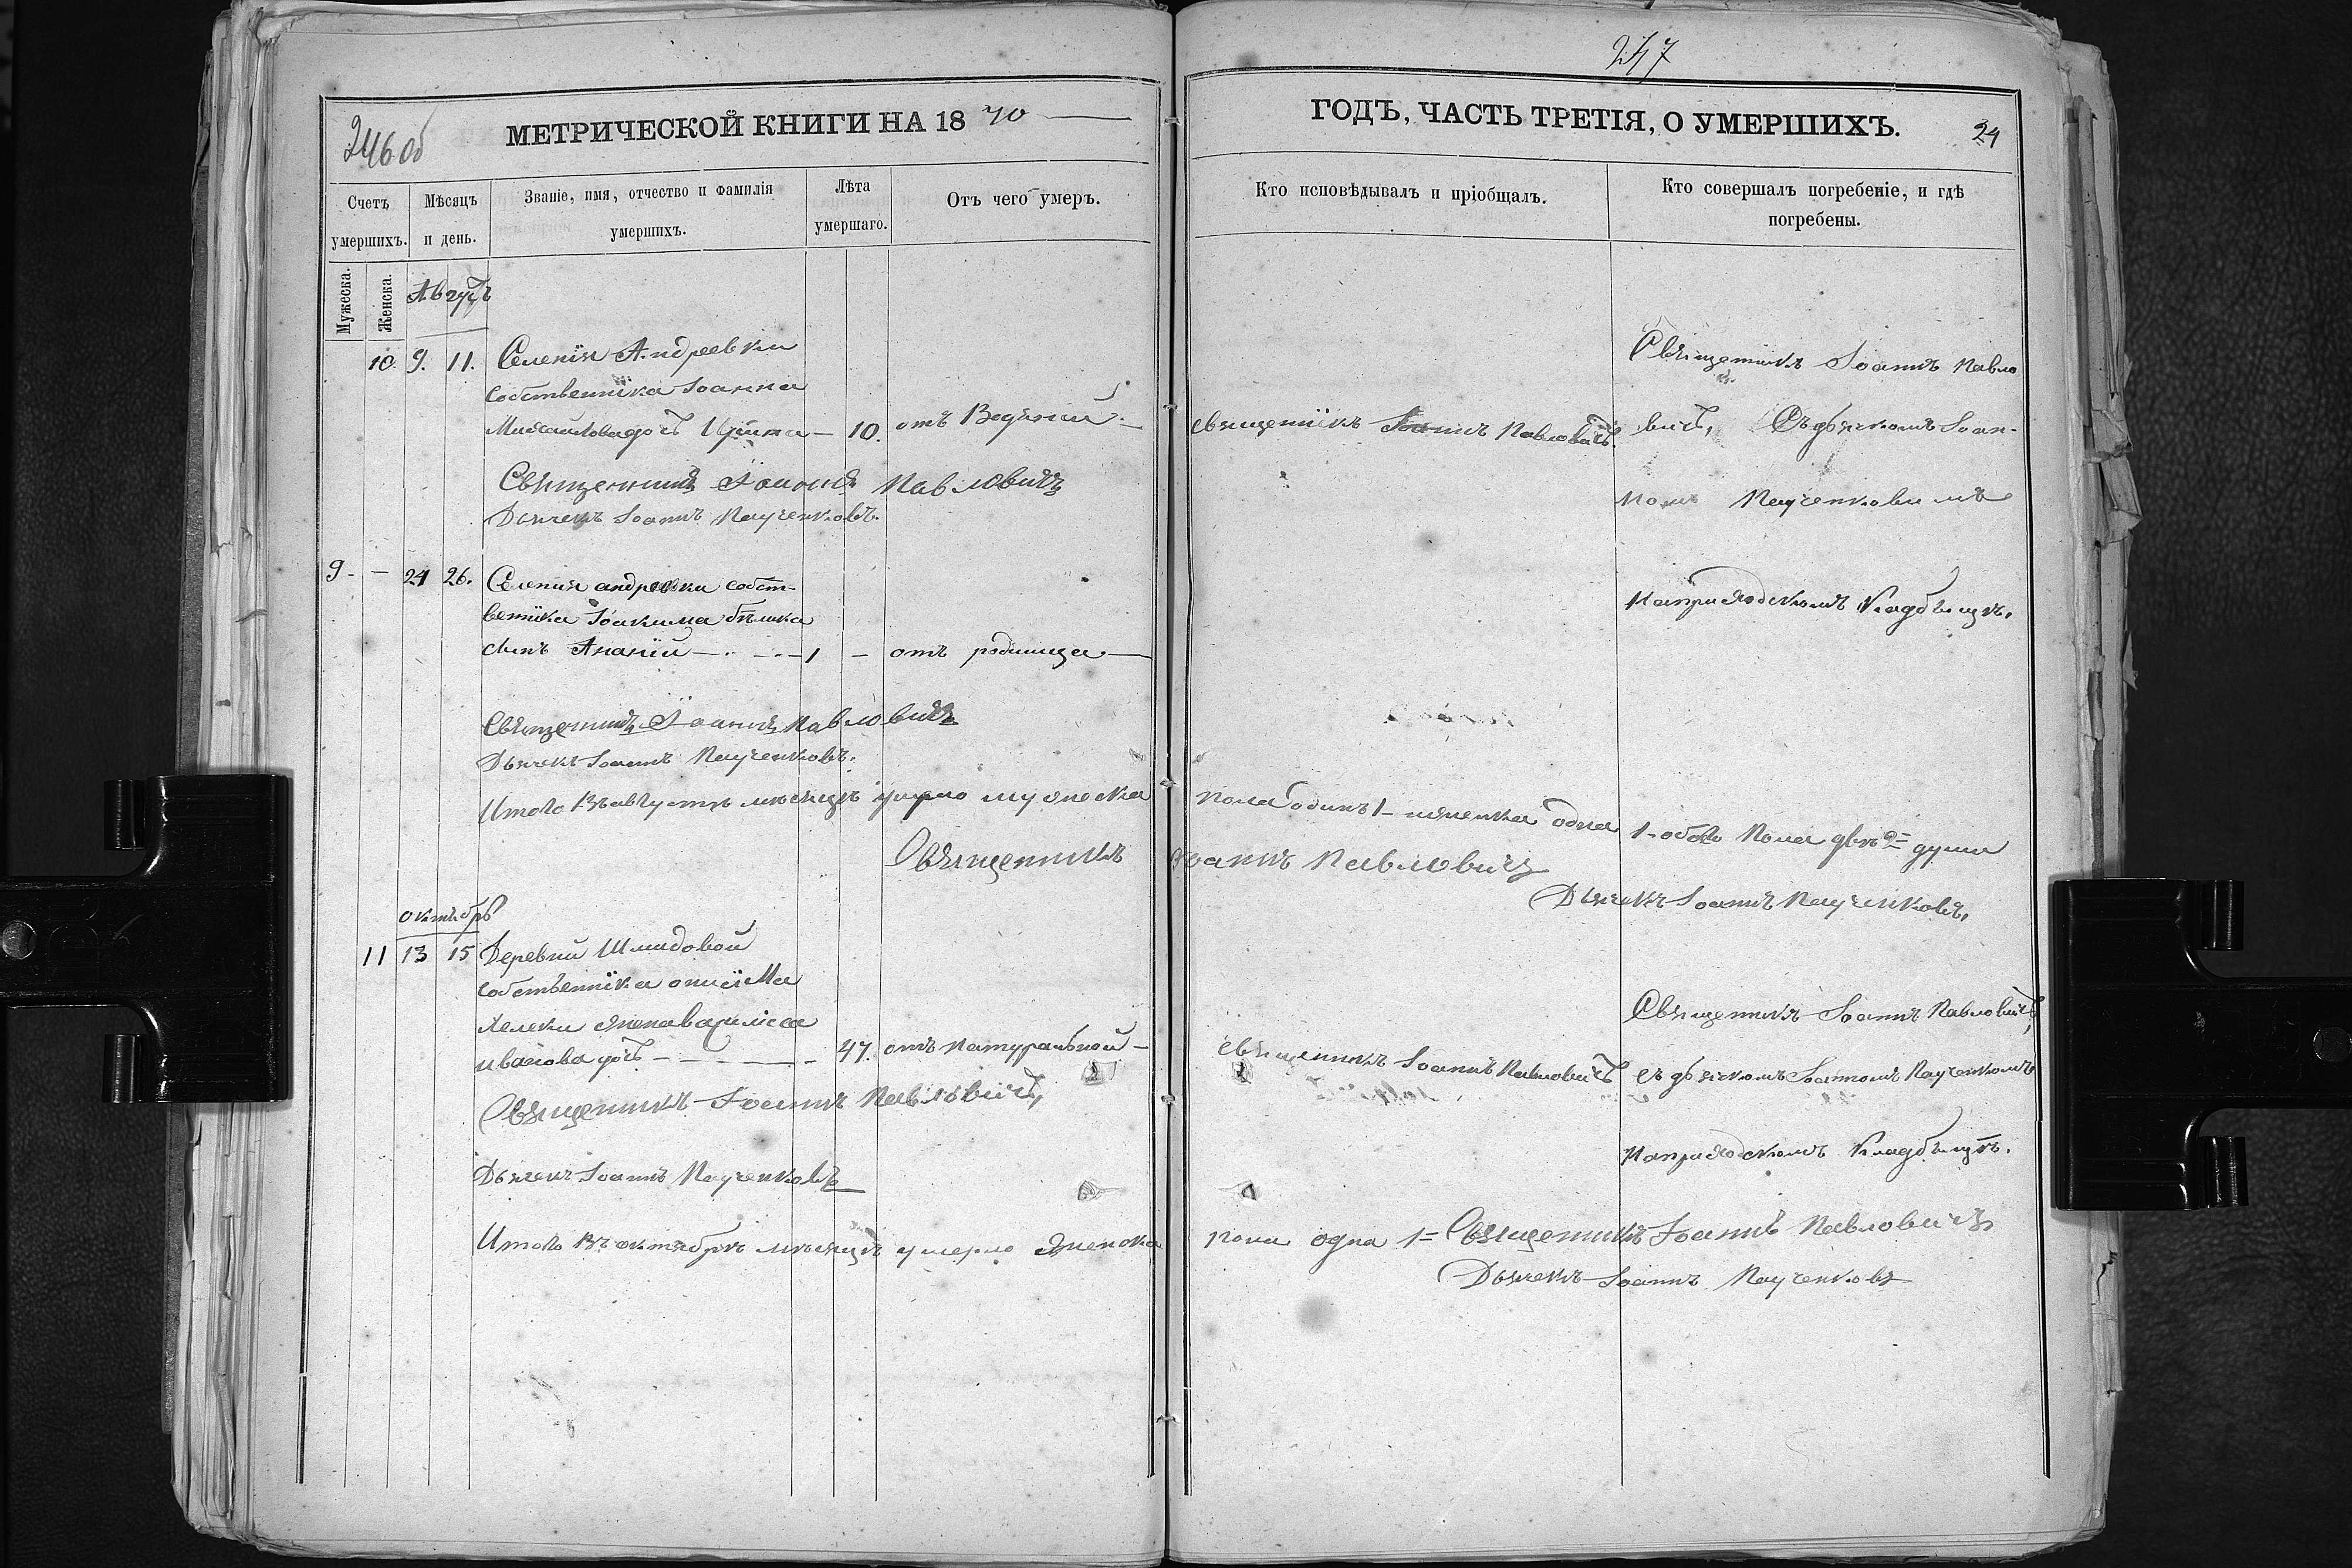 246об
МЕТРИЧЕСКОЙ КНИГИ НА 1870
Счетъ умершихъ.
Мѣсяцъ и день.
Званіе, имя, отчество и фамилія умершихъ.
Лѣта умершаго.
Отъ чего умеръ.
Мужеска.
Женска.
Августъ
10. 9. 11. Селенія Андреевки
собственника Іоанна
Михаилова дочь Ирина — 10. отъ
Священникъ Іоаннъ Павловичъ
Дьячекъ Іоаннъ Паученковъ.
9 - — 24 26. Селенія андреевки собст-
венніка Іоакима бѣлика
сынъ Ананій — 1 — отъ родимца —
Священникъ Іоаннъ Павловичъ
Дьячекъ Іоаннъ Паученковъ.
Итого въ августѣ мѣсяцѣ умерло мужеска
Священникъ
октябрь
11 13 15 Деревни Шмидовой
собственніка
жена
иванова дочь — 47. отъ натуральной —
Священникъ Іоаннъ Павловичъ,
Дьячекъ Іоаннъ Паученковъ
Итого въ октябрѣ мѣсяцѣ умерло женска
247
ГОДЪ, ЧАСТЬ ТРЕТІЯ, О УМЕРШИХЪ.
24
Кто исповѣдывалъ и пріобщалъ.
Кто совершалъ погребеніе, и гдѣ погребены.
Священникъ Іоаннъ Павло
священікъ Іоаннъ Павловичъ.
вичъ, Съ дьячкомъ Іоан-
номъ Паученковимъ
на приходскомъ кладбищѣ.
пола одинъ 1 - женска одна 1 - обоего пола двѣ 2 = души
Іоаннъ Павловичъ
Дьячекъ Іоаннъ Паученковъ.
Священникъ Іоаннъ Павловичъ,
священникъ Іоаннъ Павловичъ
съ дьячкомъ Іоанномъ Паученкомъ
на приходскомъ кладбищѣ.
пола одна 1 = Священникъ Іоаннъ Павловичъ
Дьячекъ Іоаннъ Паученковъ